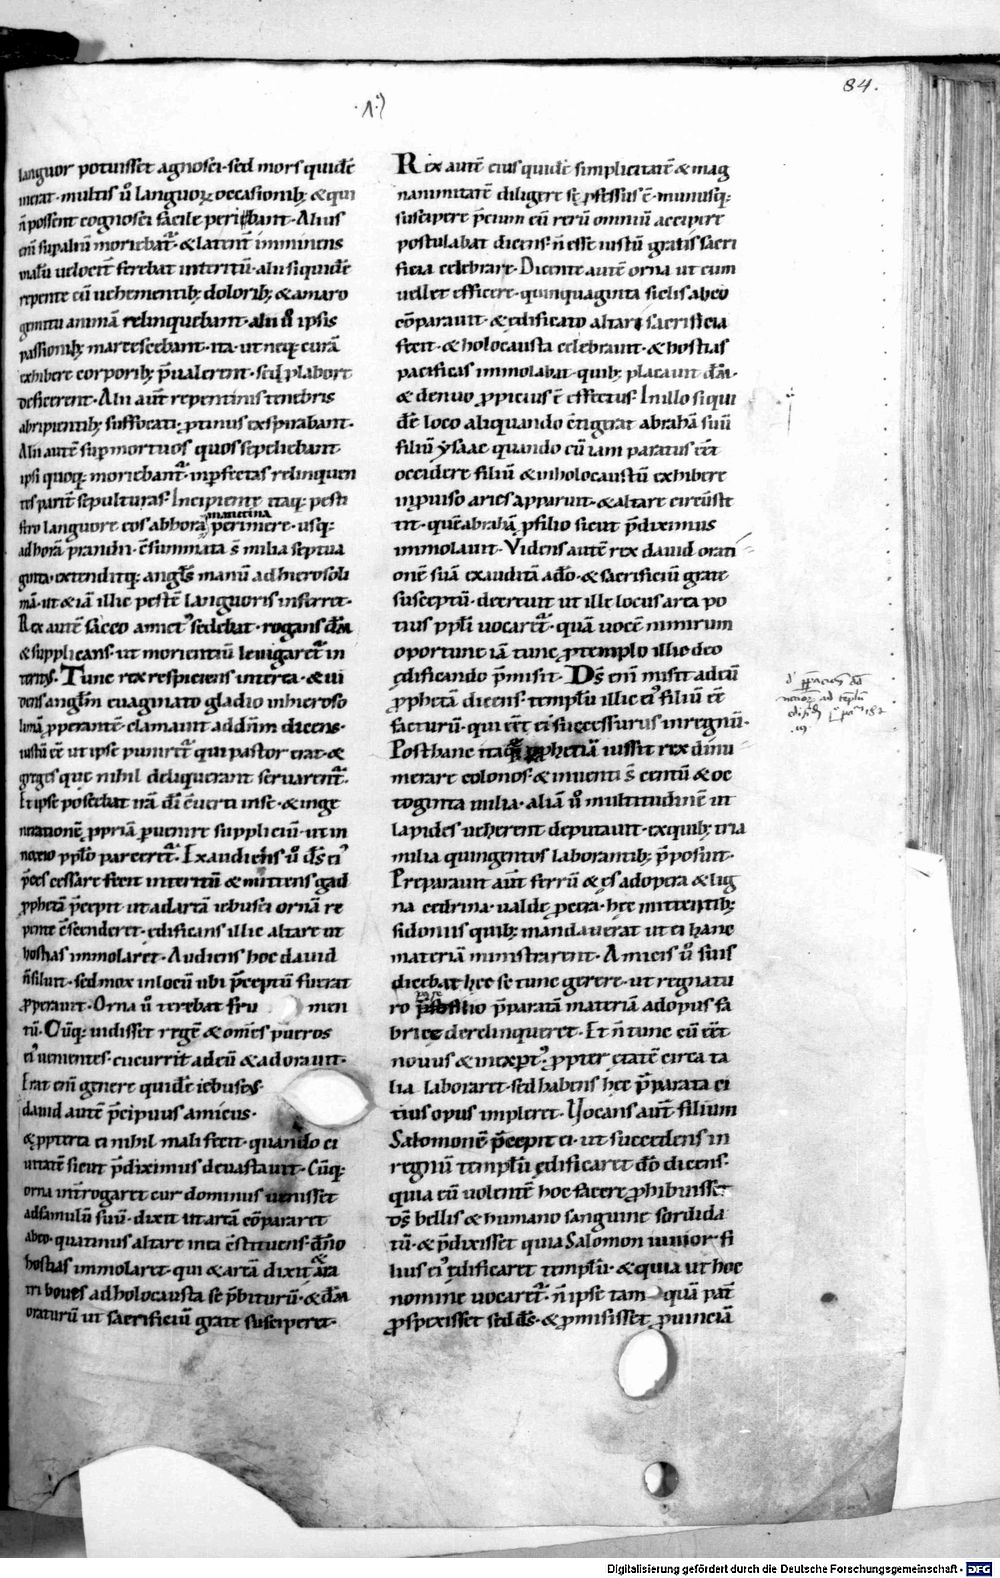 84.
languor potuisset agnosci· sed mors quidē
inerat· multis ů languorꝝ occasionib; & qui
n̄ possent cognosci facile peribant· Alius
eni̅ sup aliū moriebat᷑· & latent̄ imminens
malū velocit̄ ferebat interitū· alii siquidē
repente cū vehementib; dolorib; & amaro
gemitu animā relinquebant· alii ů ipsis
passionib; marcescebant· ita· ut neq; curā
exhibere corporib; p̄ualerent· sed ꝑ labore
deficerent· Alii aut̄ repentinis tenebris
abripientib; suffocati· ꝓtinus exspirabant·
Alii autē sup mortuos quos sepeliebant
ipsi quoq; moriebant᷑· inpfectas relinquen
tes parit̄ sepulturas· Incipiente itaq; pesti
matutina
fero languore eos ab hora perimere· usq;
ad horā prandii· c̄summata s̄ milia septua
ginta· extenditq; angl̄s manū ad hierosoli
mā· ut & iā illic pestē languoris inferret·
Rex autē sacco amict᾽ sedebat· rogans dm̄
& supplicans· ut morientiū levigaret᷑ in
teritus· Tunc rex respiciens interea· & vi
dens anglm̄ evaginato gladio in hieroso
limā ꝓperantē· clamavit ad dn̄m dicens·
iustū ēē ut ipse puniret᷑ qui pastor erat· &
greges quę nihil deliquerant servarent᷑·
Et ipse poscebat irā di̅ c̄verti in se· & in ge
nerationē ꝓpriā ꝑvenire suppliciū· ut in
noxio pplo̅ parceret᷑· Exaudiens ů ds̄ ei᾽
p̄ces cessare fecit interitū & mittens gad
ꝓphetā p̄cepit· ut ad artā iebusei ornā re
pente c̄scenderet· edificans illic altare ut
hostias immolaret· Audiens hoc david
n̄ siluit· sed mox in locū ubi p̄ceptū fuerat
ꝓperavit· Orna ů terebat fru men
tū· Cūq; vidisset regē & om̄es pueros
ei᾽ venientes· cucurrit ad eū & adoravit·
Erat eni̅ genere quidē iebuseus
david autē p̄cipuus amicus·
& ppterea ei nihil mali fecit· quando ci
vitatē sicut p̄diximus devastavit· Cūq;
orna int̄rogaret cur dominus venisset
ad famulū suū· dixit ut artā cōpararet
ab eo· quatinus altare in ea c̄stituens· dn̅o
hostias immolaret· qui & artā dixit & ara
tri boves ad holocausta se p̄biturū· & dm̄
oraturū ut sacrificiū grate susciperet·
Rex autē eius quidē simplicitatē & mag
nanimitatē diligere sę ꝓfessus ē· munusq;
suscipere p̄cium eū rerū omniū accipere
postulabat dicens· n̄ esse iustū gratis sacri
ficia celebrare· Dicente autē orna ut cum
vellet efficere· quinquaginta siclis ab eo
cōparavit· & edificato altari sacrificia
fecit· & holocausta celebravit· & hostias
pacificas immolabat· quib; placavit dm̄·
& denuo ꝓpicius ē effectus· In illo siqui
dē loco aliquando c̄tigerat abrahā suū
filiū ysaac quando cū iam paratus eēt
occidere filiū & in holocaustū exhibere
inꝓviso aries apparuit· & altare circūste
tit· quē abrahā ꝓ filio sicut p̄diximus
immolavit· Videns autē rex david orati
onē suā exauditā a do̅· & sacrificiū grate
susceptū· decrevit ut ille locus arta po
tius pplī vocaret᷑· quā vocē nimirum
oportune iā tunc ꝓ templo illic deo
ędificando p̄misit· Ds̄ eni̅ misit ad eū
ꝓphetā dicens· templū illic ei᾽ filiū eē
facturū· qui eēt ei successurus in regnū·
Post hanc itaq; ꝓphetiā iussit rex dinu
merare colonos· & inventi s̄ centū & oc
toginta milia· aliā ů multitudinē ut
lapides veherent deputavit· ex quib; tria
milia quingentos laborantib; p̄posuit·
Preparavit aut̄ ferrū & ęs ad opera & lig
na cedrina· valde pcera· hęc mittentib;
sidoniis quib; mandaverat ut ei hanc
materiā ministrarent· Amicis ů suis
dicebat hęc se tunc gerere· ut regnatu
ro filio p̄paratā materiā ad opus fa
bricę derelinqueret· Et n̄ tunc cū eēt
novus & inexpt᾽· ꝓpter etatē circa ta
lia laboraret· sed habens hęc p̄parata ci
tius opus impleret· Vocans aut̄ filium
Salomonē p̄cepit ei· ut succedens in
regnū templū ędificaret do̅ dicens·
quia eū volentē hoc facere ꝓhibuisset
ds̄ bellis & humano sanguine sordida
tū· & p̄dixisset quia Salomon iunior fi
lius ei᾽ ędificaret templū· & quia ut hoc
nomine vocaret᷑· n̄ ipse tam quā pat̄
ꝓspexisset sed ds̄· & ꝓmisisset ꝓvinciā
Digitalisierung gefördert durch die Deutsche Forschungsgemeinschaft - DFG